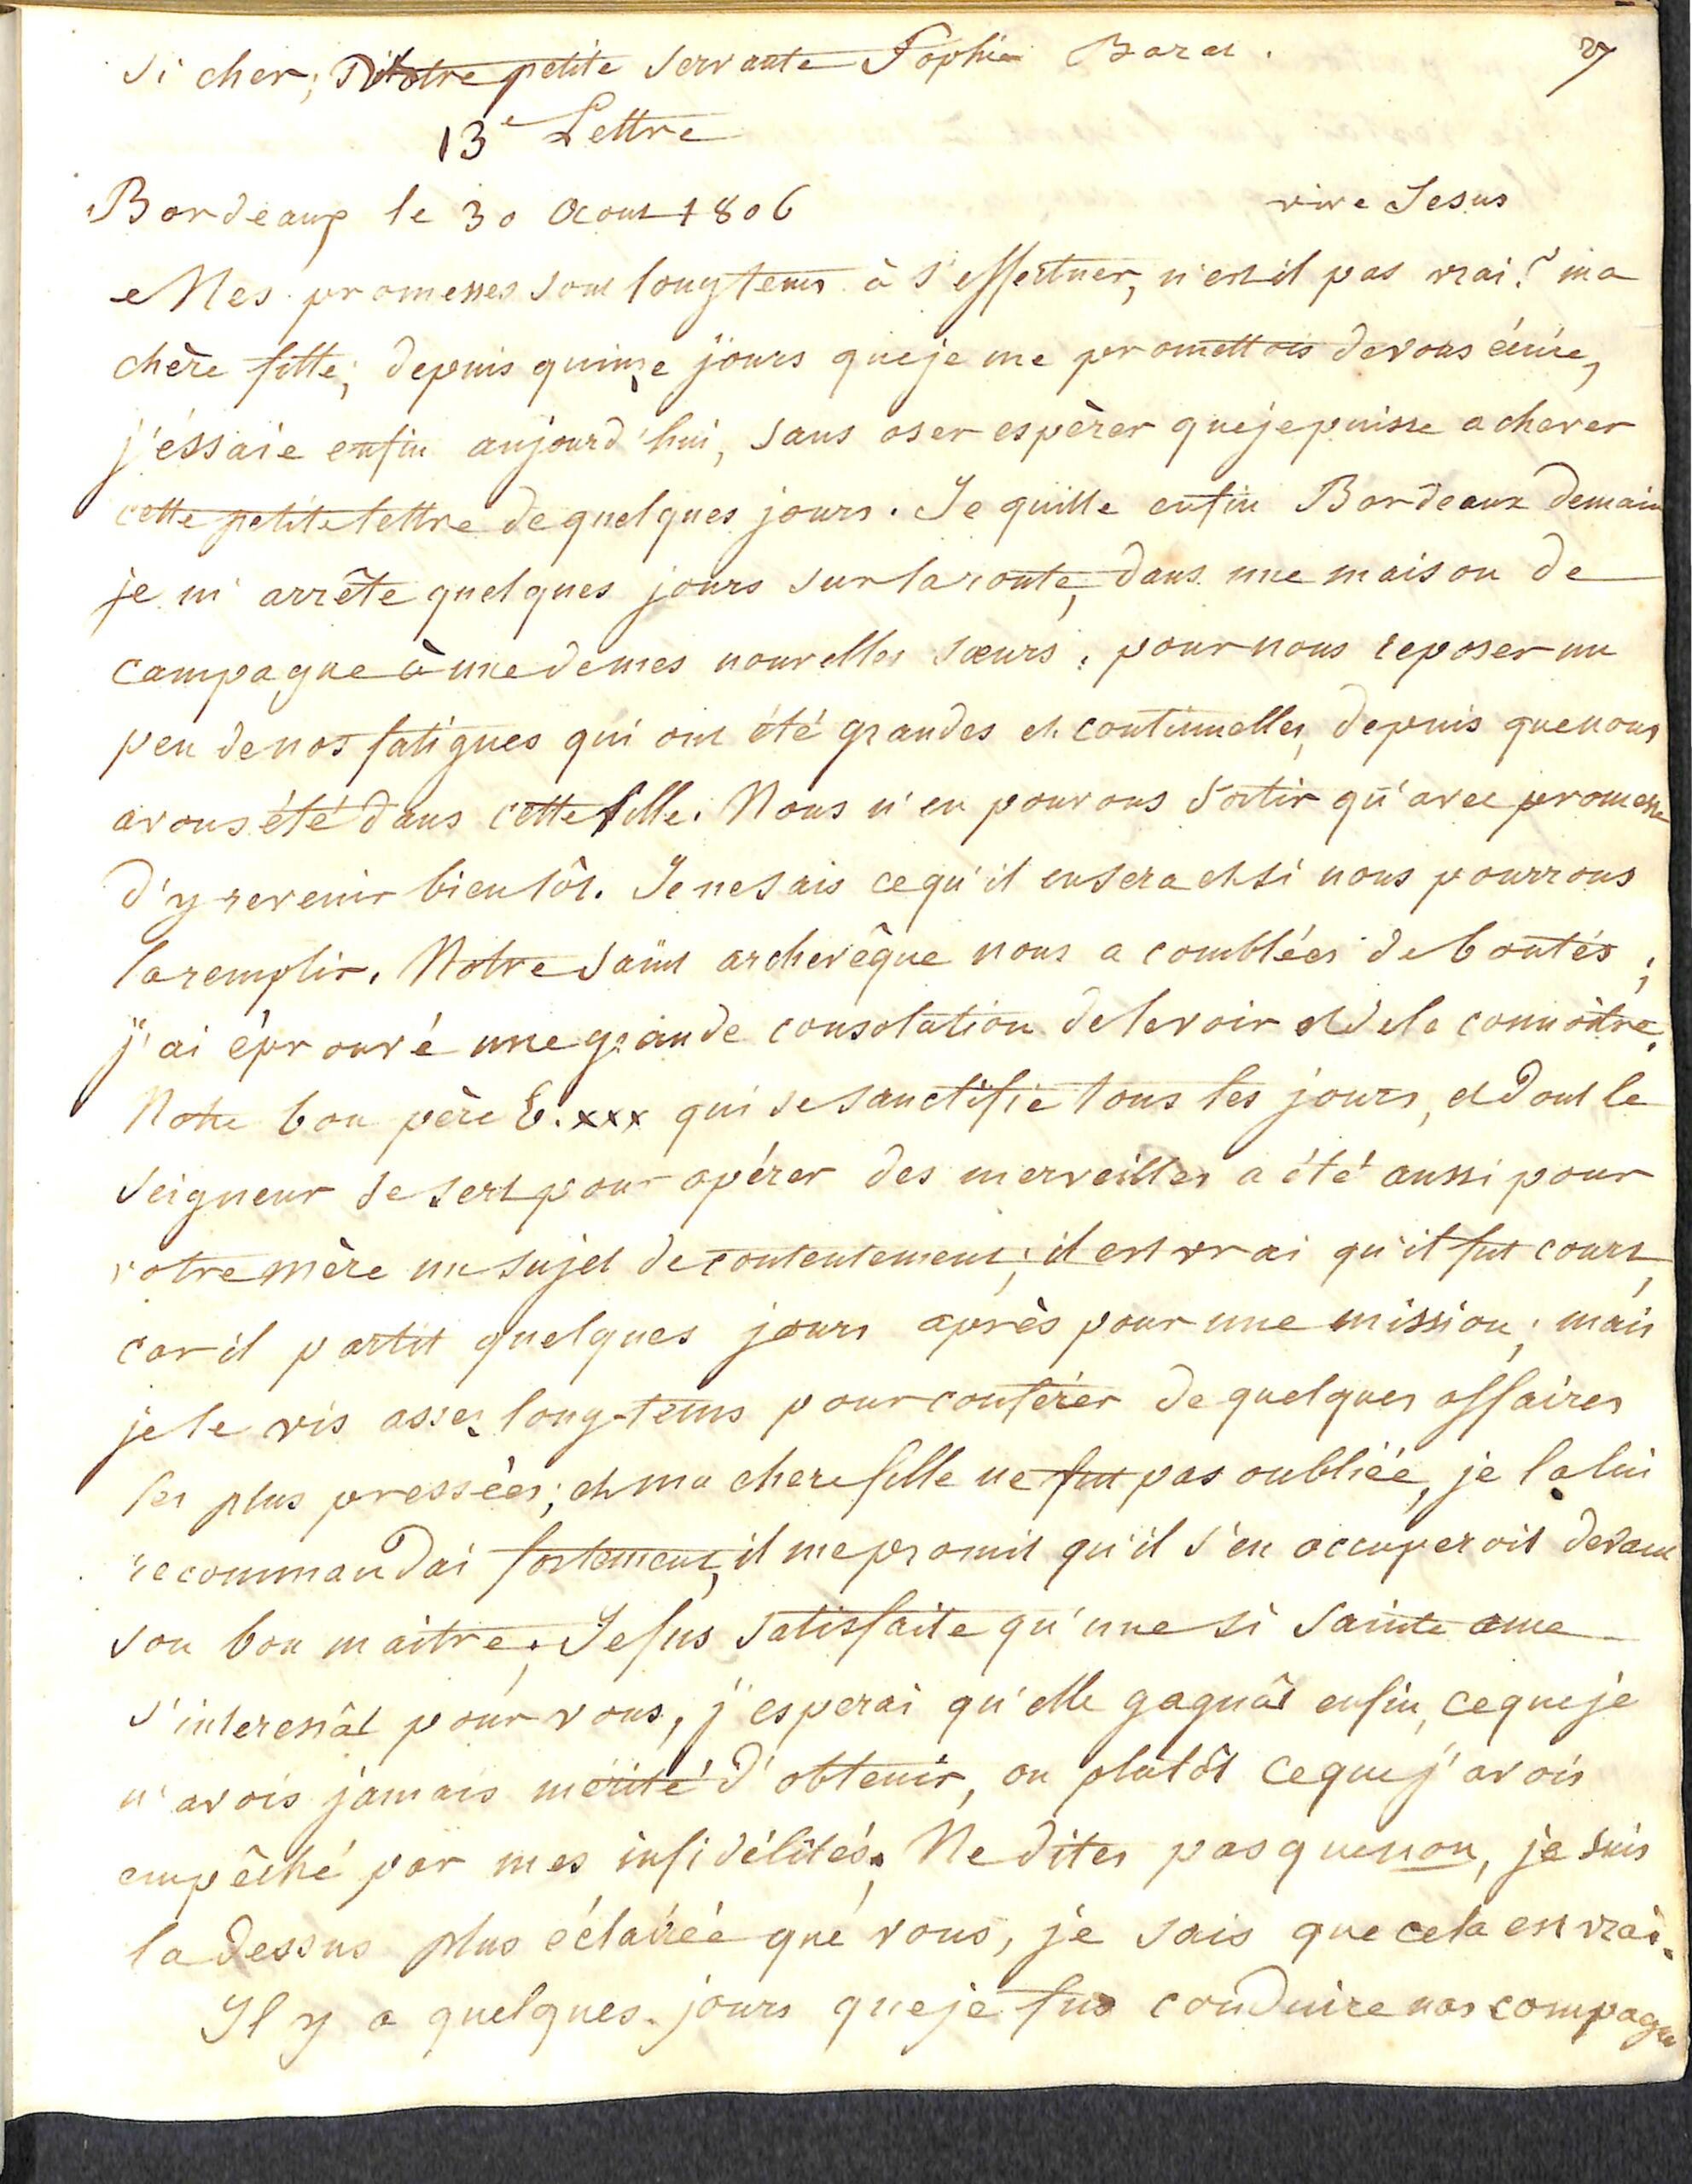 si cher; Votre petite servante Sophie Barat.
27
13e Lettre
Bordeaux le 30 Aout 1806
vive Jesus
Mes promesses sont longtems à s'effectuer, n'est il pas vrai? ma
chère fille; depuis quinze jours que je me promettois de vous écrire,
j'éssaie enfin aujourd'hui, sans oser espèrer que je puisse achever
cette petite lettre de quelques jours. Je quitte enfin Bordeaux demain
je m'arrête quelques jours sur la route, dans une maison de
campagne à une de mes nouvelles sœurs; pour nous reposer un
peu de nos fatigues qui ont été grandes et continuelles, depuis que nous
avons été dans cette ville. Nous n'en pouvons sortir qu'avec promesse
d'y revenir bientôt. Je ne sais ce qu'il en sera et si nous pourrons
la remplir. Notre saint archevêque nous a comblées de bontés;
j'ai éprouvé une grande consolation de le voir et de le connoître.
Notre bon père E. xxx qui se sanctifie tous les jours, et dont le
seigneur se sert pour opérer des merveilles a été aussi pour
votre mère un sujet de contentement; il est vrai qu'il fut court,
car il partit quelques jours après pour une mission; mais
je le vis assez long-tems pour conférer de quelques affaires
les plus pressées; et ma chere fille ne fut pas oubliée, je la lui
recommandai fortement, il me promit qu'il s'en occuperoit devant
son bon maitre; Jesus satisfaite qu'une si sainte ame
s'interessât pour vous, j'esperai qu'elle gagnât enfin, ce que je
n'avois jamais mérité d'obtenir, ou plutôt ce que j'avois
empêché par mes infidélités. Ne dites pas que non, je suis
la dessus plus éclairée que vous, je sais que cela est vrai.
Il y a quelques jours que je fus conduire nos compagnes